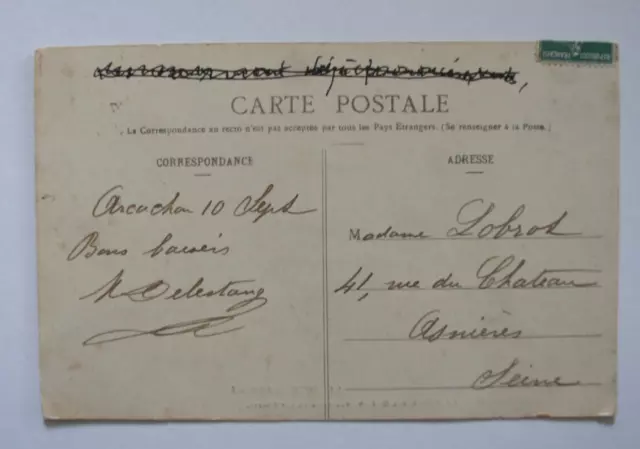 CARTE POSTALE
La Correspondance au recto n'est pas acceptée par tous les Pays Étrangers. (Se renseigner à la Poste.)
CORRESPONDANCE
Arcachon 10 Sept
Bons baisers
M Delestang
ADRESSE
Madame Lobrot
41, rue du Chateau
Asnières
Seine